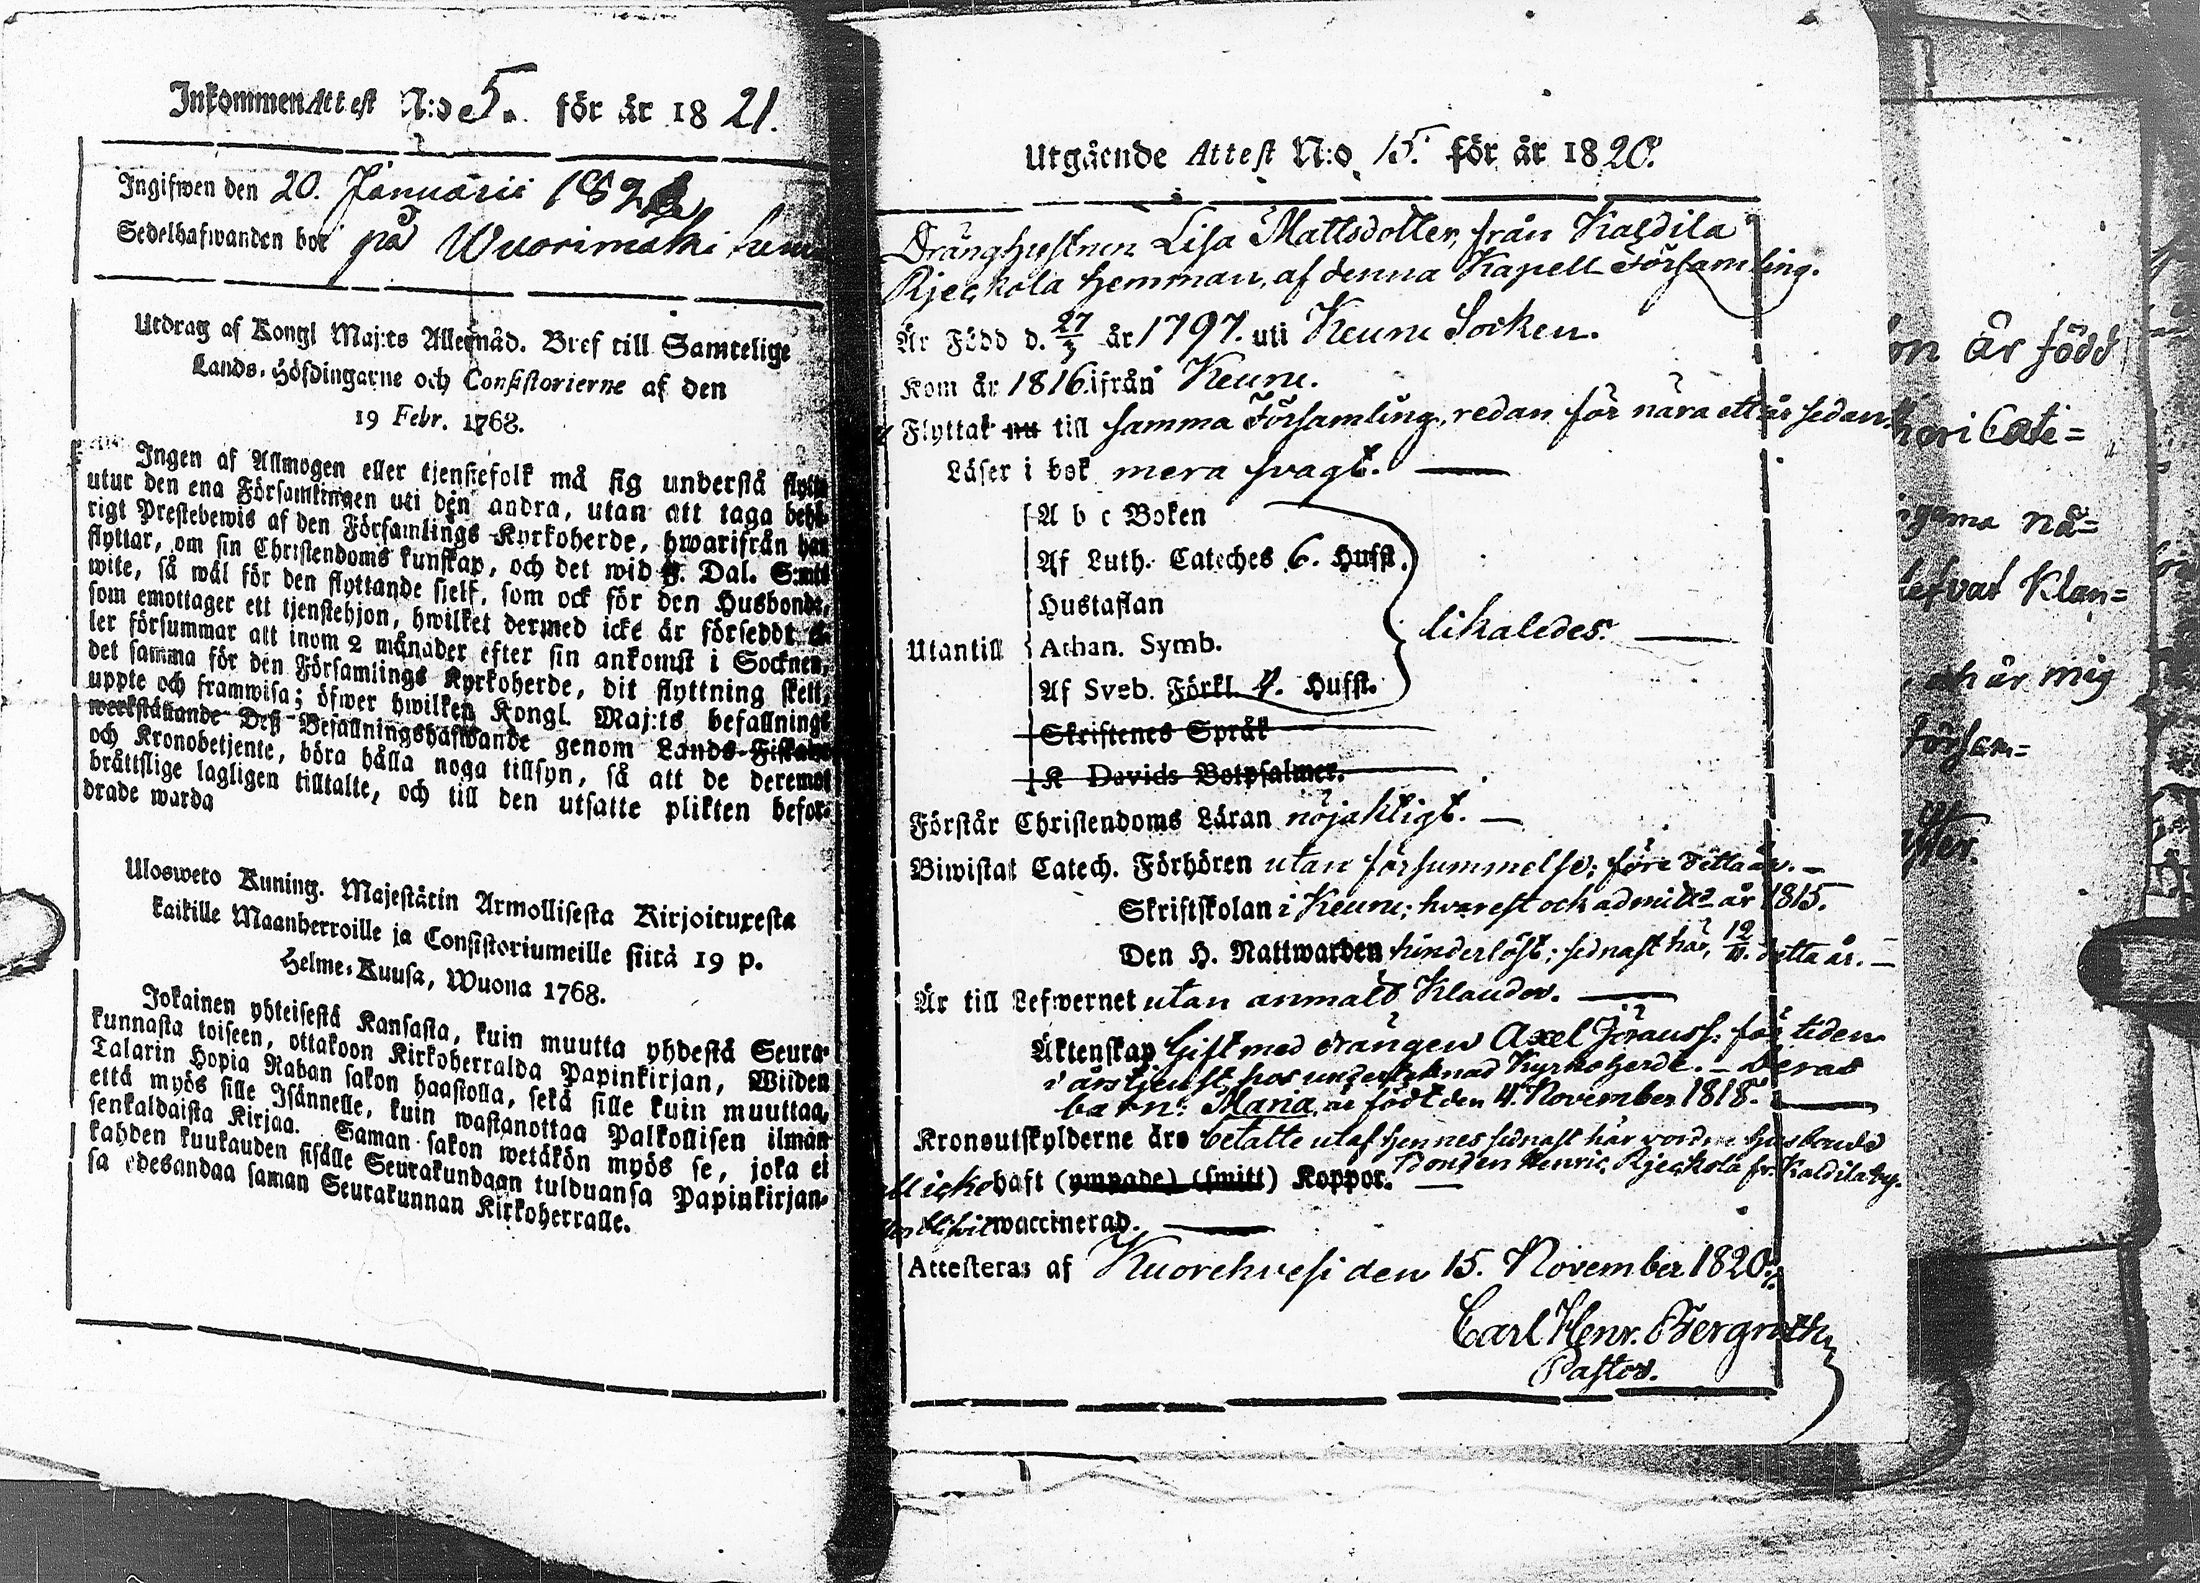 Inkommen Attest N:o 5. för år 1821.
Ingifwen den 20. Januarii
Sedelhafwanden bor på Wuorimäki
Utdrag af Kongl Maj:ts Allernåd. Bref till Samtelige
Lands-Höfdingarne och Consistorierne af den
19 Febr. 1768.
Ingen af Allmogen eller tjenstefolk må sig understå flytta
utur den ena Församlingen uti den andra, utan att taga behö-
rigt Prestebewis af den Församlings Kyrkoherde, hwarifrån han
flyttar, om sin Christendoms kunskap, och det wid 5. Dal. S:mts
wite, så wäl för den flyttande sjelf, som ock för den Husbonde,
som emottager ett tjenstehjon, hwilket dermed icke är försedt el-
ler försummar att inom 2 månader efter sin ankomst i Socknen,
det samma för den Församlings Kyrkoherde, dit flyttning skett,
uppte och framwisa; öfwer hwilken Kongl. Maj:ts befallnings
werkställande Deß Befallningshafwande genom Lands-Fiskaler
och Kronobetjente, böra hålla noga tillsyn, så att de deremot
bråttslige lagligen tilltalte, och till den utsatte plikten befor-
drade warda
Ulosweto Kuning. Majestätin Armollisesta Kirjoituxesta
kaikille Maanherroille ja Consistoriumeille siitä 19 p.
Helme-Kuusa, Wuona 1768.
Jokainen yhteisestä Kansasta, kuin muutta yhdestä Seura-
kunnasta toiseen, ottakoon Kirkoherralda Papinkirjan, Wiiden
Talarin Hopia Rahan sakon haastolla, sekä sille kuin muuttaa,
että myös sille Isännelle, kuin wastanottaa Palkollisen ilman
senkaldaista Kirjaa. Saman sakon wetäkön myös se, joka ei
kahden kuukauden sisälle Seurakundaan tulduansa Papinkirjan-
sa edesandaa saman Seurakunnan Kirkoherralle.
Utgående Attest N:o 15. för år 1820.
Dränghustrun Lisa Mattsdotter, från Kaldila
Rjeckola hemman, af denna Kapell Församling.
Är Född d. 27/3 år 1797. uti Keuru Socken.
Kom år 1816. ifrån Keuru.
Flyttat nu till samma Församling, redan för nära ett år sedan.
Läser i bok mera svagt.
A b c Boken
Af Luth. Cateches 6. Hufst.
Hustaflan
likaledes.
Utantill Athan. Symb.
Af Sveb. Förkl. 4. Hufst.
Skriftenes Språk
K Davids Botpsalmer.
Förstår Christendoms Läran nöjaktigt.
Biwistat Catech. Förhören utan försummelse; före detta år.
Skriftskolan i Keuru; hvarest ock admitt. år 1815.
Den H. Nattwarden hinderlöst; sednast här, 12/11. detta år.
Är till Lefwernet utan anmält Klander.
Äktenskap Gift med drängen Axel Joranss. för tiden
i årstjenst hos undertecknad Kyrkoherde. Deras
barn: Maria, är född den 4. November 1818.
Kronoutskylderne äro betalte utaf hennes sednast här vordne Husbonde
Bonden Henric Rjeckola fr. Kaldila by.
icke haft (ympade) (smitt) Koppor.
waccinerad.
Attesteras af Kuorehvesi den 15. November 1820.
Carl Henr. Bergroth
Pastor.
on är född
Cate=
nå=
Klan=
mig
Försam=